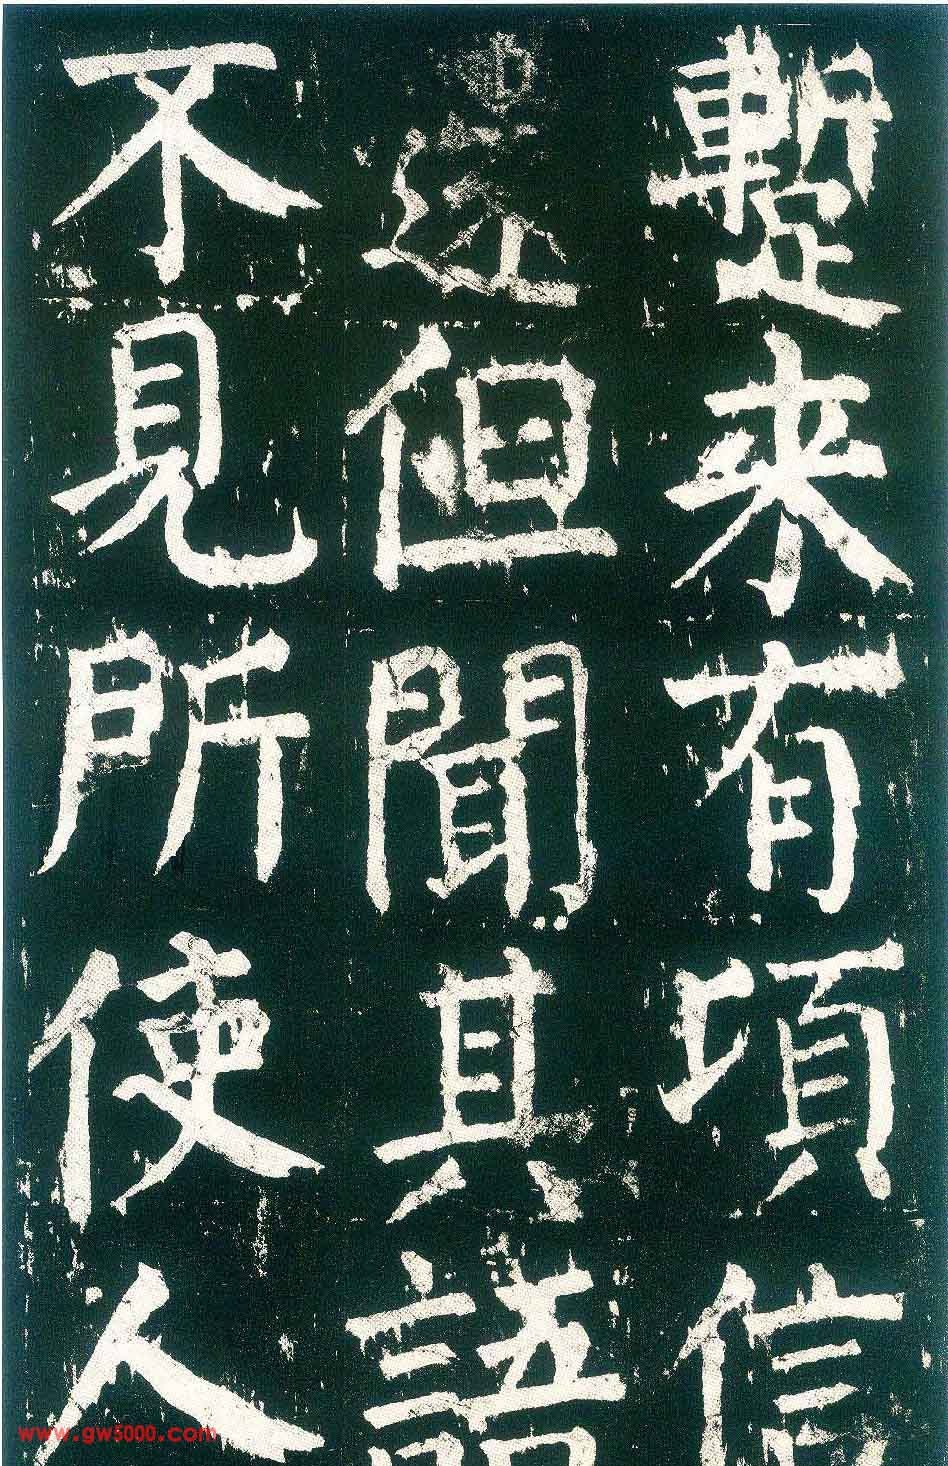 蹔来有頃信
還但聞其語
不見所使人
www.gw5000.com